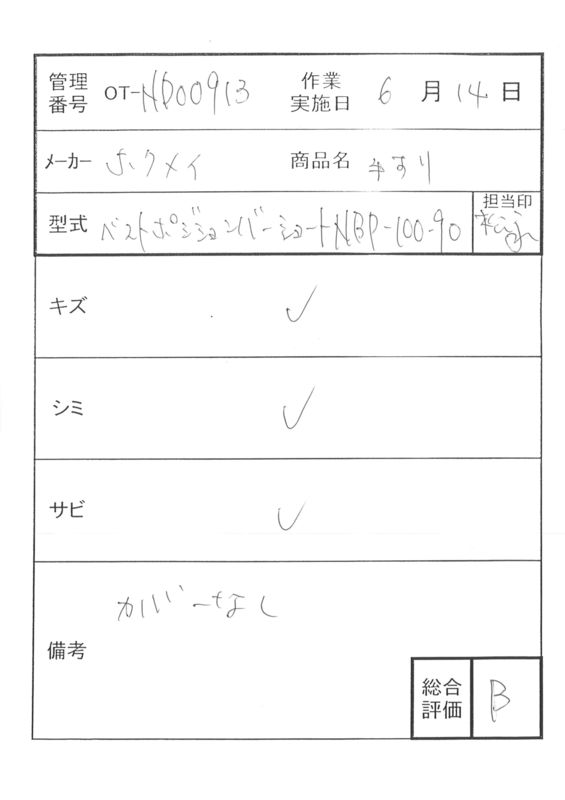 管理番号 OT-ND00913 作業実施日 6月14日
メーカー ホクメイ 商品名 手すり
型式 ベストポジションバーショートNBP-100-90 担当印
キズ ✓
シミ ✓
サビ ✓
備考 カバーなし
総合評価 B